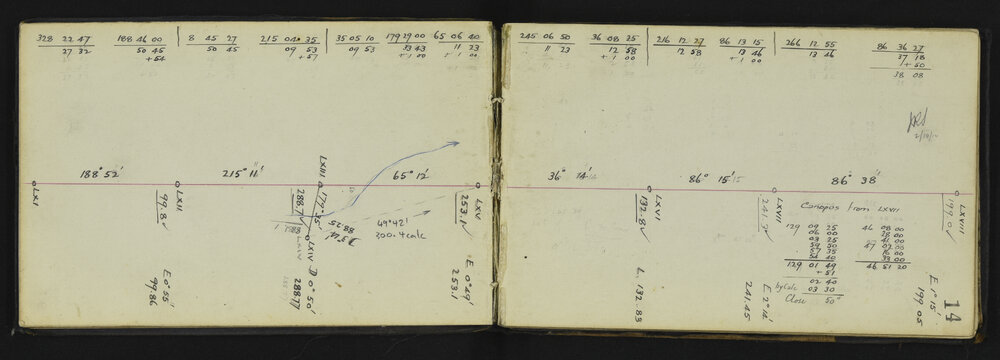 328 22 47 188 46 00 8 45 27 215 04 35 35 05 10 179 29 00 65 06 40
27 32 50 45 50 45 09 53 09 53 33 43 11 23
+54 +57 +1 00 +1 00
188° 52' 215° 11' 65° 12'
LXI
LXII
99.8
E 0° 55'
99.86
LXIII
177° 35'
288.7
88.25
LXIV
D 0° 50'
288.77
49° 42'
300.4 calc
LXV
253.1
E 0° 49'
253.1
245 06 50 36 08 25 216 12 27 86 13 15 266 12 55 86 36 27
11 23 12 58 12 58 13 46 13 46 37 18
+1 00 +1 00 1+50
38 08
2/10/10
36° 14' 86° 15' 86° 38'
LXVI
132.8
L. 132.83
LXVII
241.7
E 2° 14'
241.45
LXVIII
199.0
E 1° 15'
199.05
Canopos from LXVII
129 09 25 46 08 00
06 00 28 00
03 25 41 00
59 50 47 07 00
57 35 16 00
54 40 33 00
129 01 49 46 51 20
+51
02 40
by Calc 03 30
Close 50"
14